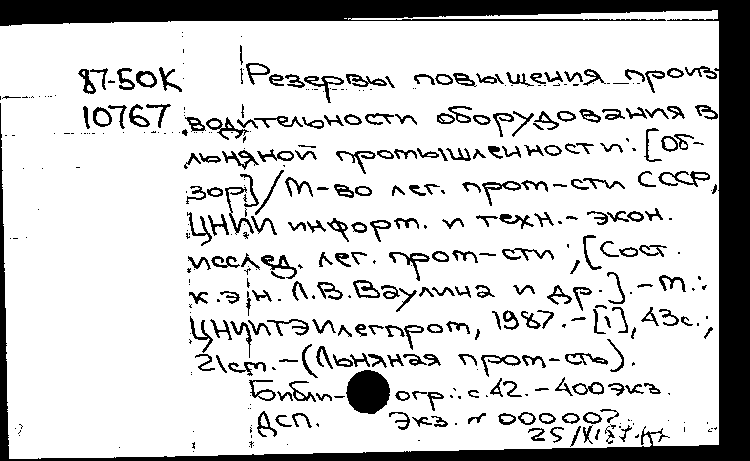 87-50К Резервы повышения произ-
10767 водительности оборудования в
льняной промышленности: [Об-
зор] / М-во лег. пром-сти СССР,
ЦНИИ информ. и техн.-экон.
исслед. лег. пром-сти; [Сост.
к.э.н. Л.В.Ваулина и др.].-М.:
ЦНИИТЭИлегпром, 1987.-[1], 43с.;
21см.-(Льняная пром-сть).
Библиогр.: с.42.-400экз.
ДСП. Экз. № 000007